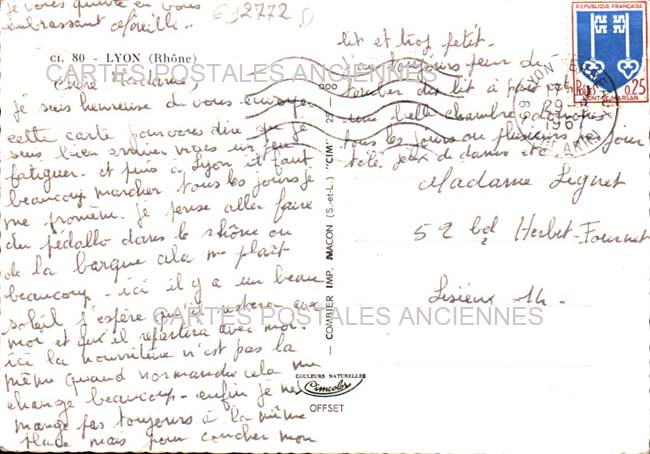 je vous quitte en vous
embrassant Mireille -
692772
ct. 80 - LYON (Rhône)
Chère Madame
je suis heureuse de vous envoyer
cette carte pour vous dire que je
suis bien arrivé mais un peu
fatiguer. et puis à Lyon il faut
beaucoup marcher tous les jours je
me promène. je pense aller faire
du pédallo dans le rhône ou
de la barque cela me plaît
beaucoup - ici il y a un beau
soleil j'espère qu'il restera avec
moi et qu'il repartira avec moi.
ici la nourriture n'est pas la
même quand normandie cela me
change beaucoup - enfin je ne
mange pas toujours à la même
place mais pour coucher mon
lit et trop petit.
j'ai toujours peur de
tomber du lit à part
une belle chambre
tous les jours ou plusieurs jour
télé jeux de dames etc
REPUBLIQUE FRANÇAISE
Postes 0,25
MONT-DE-MARSAN
LYON
29
1967
Madame Lignet
52 bd Herbet-Fournet
Lisieux 14 -
COMBIER IMP. MACON (S.-et-L.) "CIM"
COULEURS NATURELLES
Cimcolor
OFFSET
CARTES POSTALES ANCIENNES
CARTES POSTALES ANCIENNES